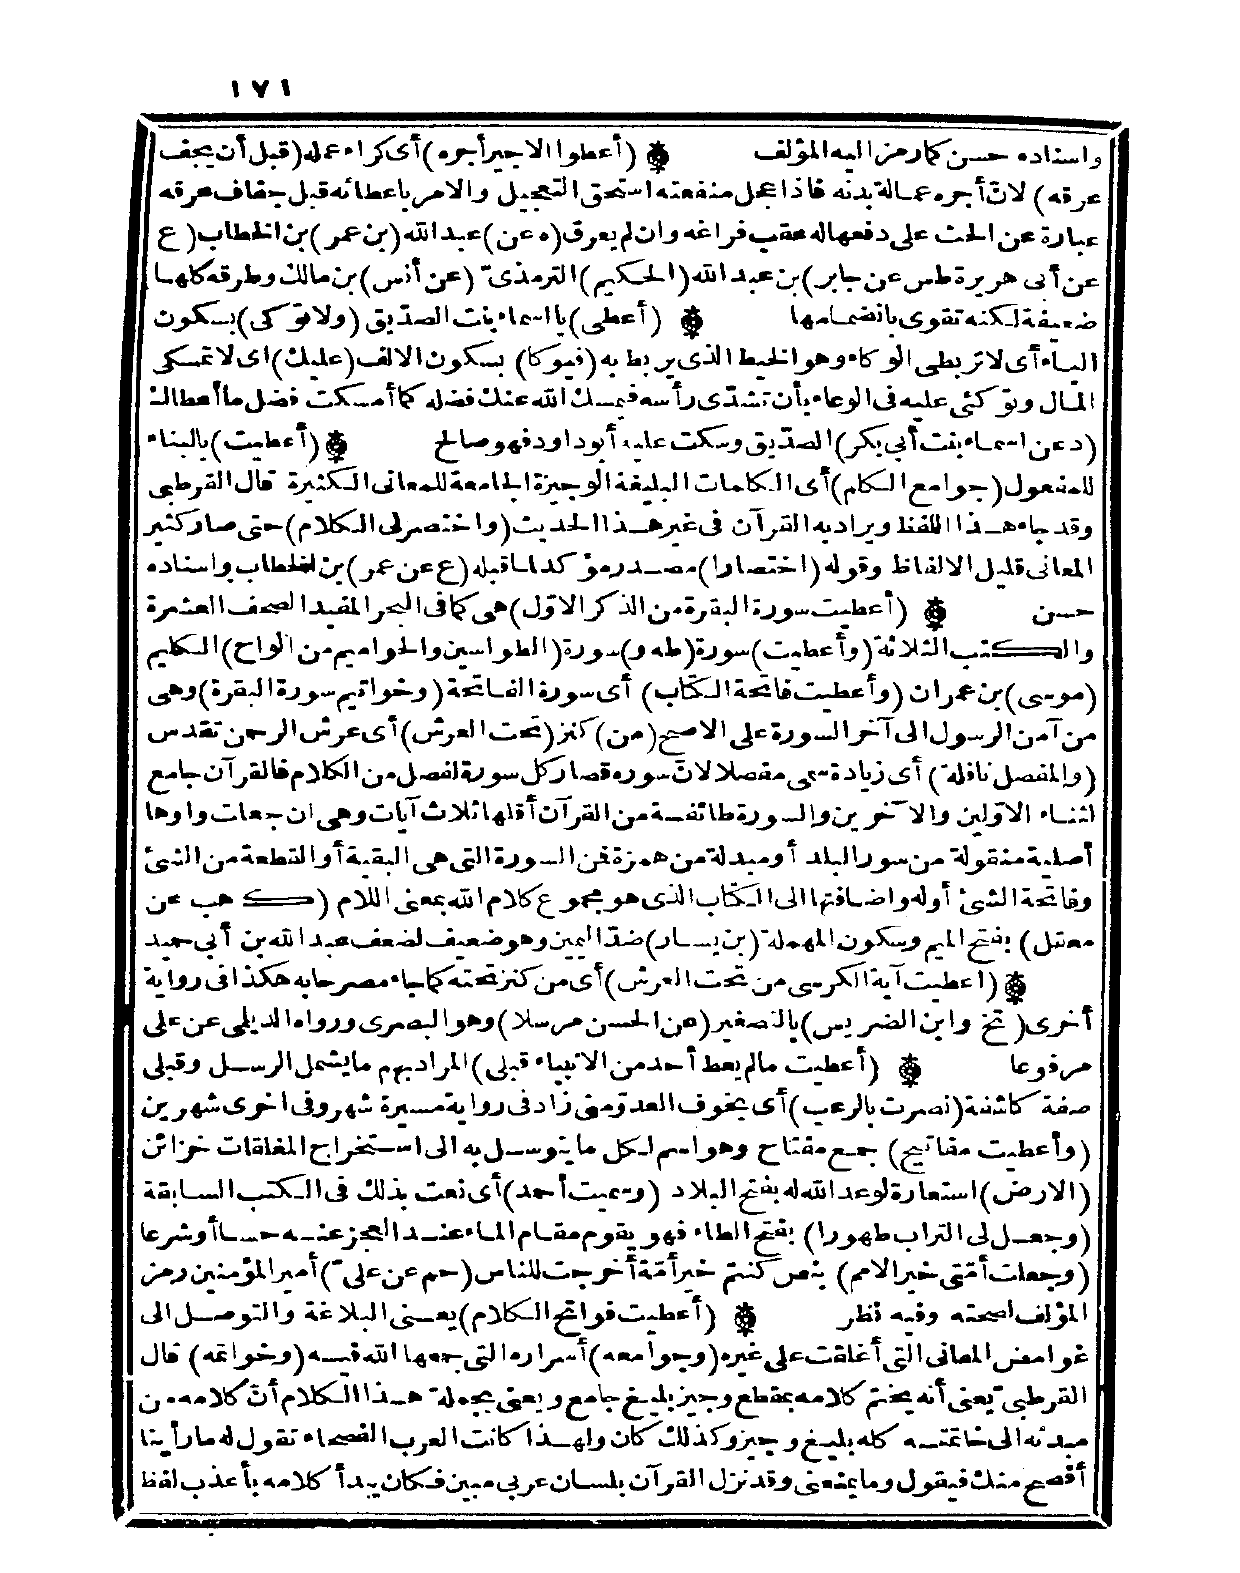 ١٧١
واسناده حسن كما رمز اليه المؤلف (أعطوا الاجير أجره) أى كراء عمله (قبل أن يجف
عرقه) لانّ أجره عمالة بدنه فاذا عجل منفعته استحق التعجيل والامر باعطائه قبل جفاف عرقه
عبارة عن الحث على دفعها له عقب فراغه وان لم يعرق (ه عن) عبد الله (بن عمر) بن الخطاب (ع
عن أبى هريرة طس عن جابر) بن عبد الله (الحكيم) الترمذىّ (عن أنس) بن مالك وطرقه كلها
ضعيفة لكنه تقوى بانضمامها (أعطى) يا اسماء بنت الصدّيق (ولا توكى) بسكون
الياء أى لا تربطى الوكاء وهو الخيط الذى يربط به (فيوكا) بسكون الالف (عليك) اى لا تمسكى
المال وتوكئى عليه فى الوعاء بأن تشدّى رأسه فيمسك الله عنك فضله كما أمسكت فضل ما أعطاك
(د عن اسماء بنت أبي بكر) الصدّيق وسكت عليه أبو داود فهو صالح (أعطيت) بالبناء
للمفعول (جوامع الكلم) أى الكلمات البليغة الوجيزة الجامعة للمعانى الكثيرة قال القرطبى
وقد جاء هذا اللفظ ويراد به القرآن فى غير هذا الحديث (واختصر لى الكلام) حتى صار كثير
المعانى قليل الالفاظ وقوله (اختصارا) مصدر مؤكد لما قبله (ع عن عمر) بن الخطاب واسناده
حسن (أعطيت سورة البقرة من الذكر الاوّل) هى كما فى البحر المفيد الصحف العشرة
والكتب الثلاثة (وأعطيت) سورة (طه و) سورة (الطواسين والحواميم من الواح) الكليم
(موسى) بن عمران (وأعطيت فاتحة الكتاب) أى سورة الفاتحة (وخواتيم سورة البقرة) وهى
من آمن الرسول الى آخر السورة على الاصح (من) كنز (تحت العرش) أى عرش الرحمن تقدس
(والمفصل نافلة) أى زيادة سمى مفصلا لانّ سوره قصار كل سورة لفصل من الكلام فالقرآن جامع
لثناء الاوّلين والآخرين والسورة طائفسة من القرآن أقلها ثلاث آيات وهى ان جعلت واوها
أصلية منقولة من سور البلد أو مبدلة من همزة فمن السورة التى هى البقية أو القطعة من الشئ
وفاتحة الشئ أوله واضافتها الى الكتاب الذى هو مجموع كلام الله بمعنى اللام (ك هب عن
معقل) بفتح الميم وسكون المهملة (بن يسار) ضدّ اليمين وهو ضعيف لضعف عبد الله بن أبي حميد
(اعطيت آية الكرسى من تحت العرش) أى من كنز تحته كما جاء مصرحا به هكذا فى رواية
أخرى (تخ وابن الضريس) بالتصغير (عن الحسن مرسلا) وهو البصرى ورواه الديلمى عن على
مرفوعا (أعطيت ما لم يعط أحد من الانبياء قبلى) المراد بهم ما يشمل الرسل وقبلى
صفة كاشفة (نصرت بالرعب) أى بخوف العدوّ منى زاد فى رواية مسيرة شهر وفى اخرى شهرين
(وأعطيت مفاتيح) جمع مفتاح وهو اسم لكل ما يتوسل به الى استخراج المغلقات خزائن
(الارض) استعارة لوعد الله له بفتح البلاد (وسميت أحمد) أى نعت بذلك فى الكتب السابقة
(وجعل لى التراب طهورا) بفتح الطاء فهو يقوم مقام الماء عند العجز عنه حسا أو شرعا
(وجعلت أمّتى خير الامم) بنص كنتم خير أمّة أخرجت للناس (حم عن علىّ) أمير المؤمنين رمز
المؤلف لصحته وفيه نظر (أعطيت فواتح الكلام) يعنى البلاغة والتوصل الى
غوامض المعانى التى أغلقت على غيره (وجوامعه) أسراره التى جمعها الله فيه (وخواتمه) قال
القرطبىّ يعنى أنه يختم كلامه بمقطع وجيز بليغ جامع ويعنى بجملة هذا الكلام أنّ كلامه من
مبدئه الى خاتمته كله بليغ وجيز وكذلك كان ولهذا كانت العرب الفصحاء تقول له ما رأينا
أفصح منك فيقول وما يمنعنى وقد نزل القرآن بلسان عربي مبين فكان يبدأ كلامه بأعذب لفظ